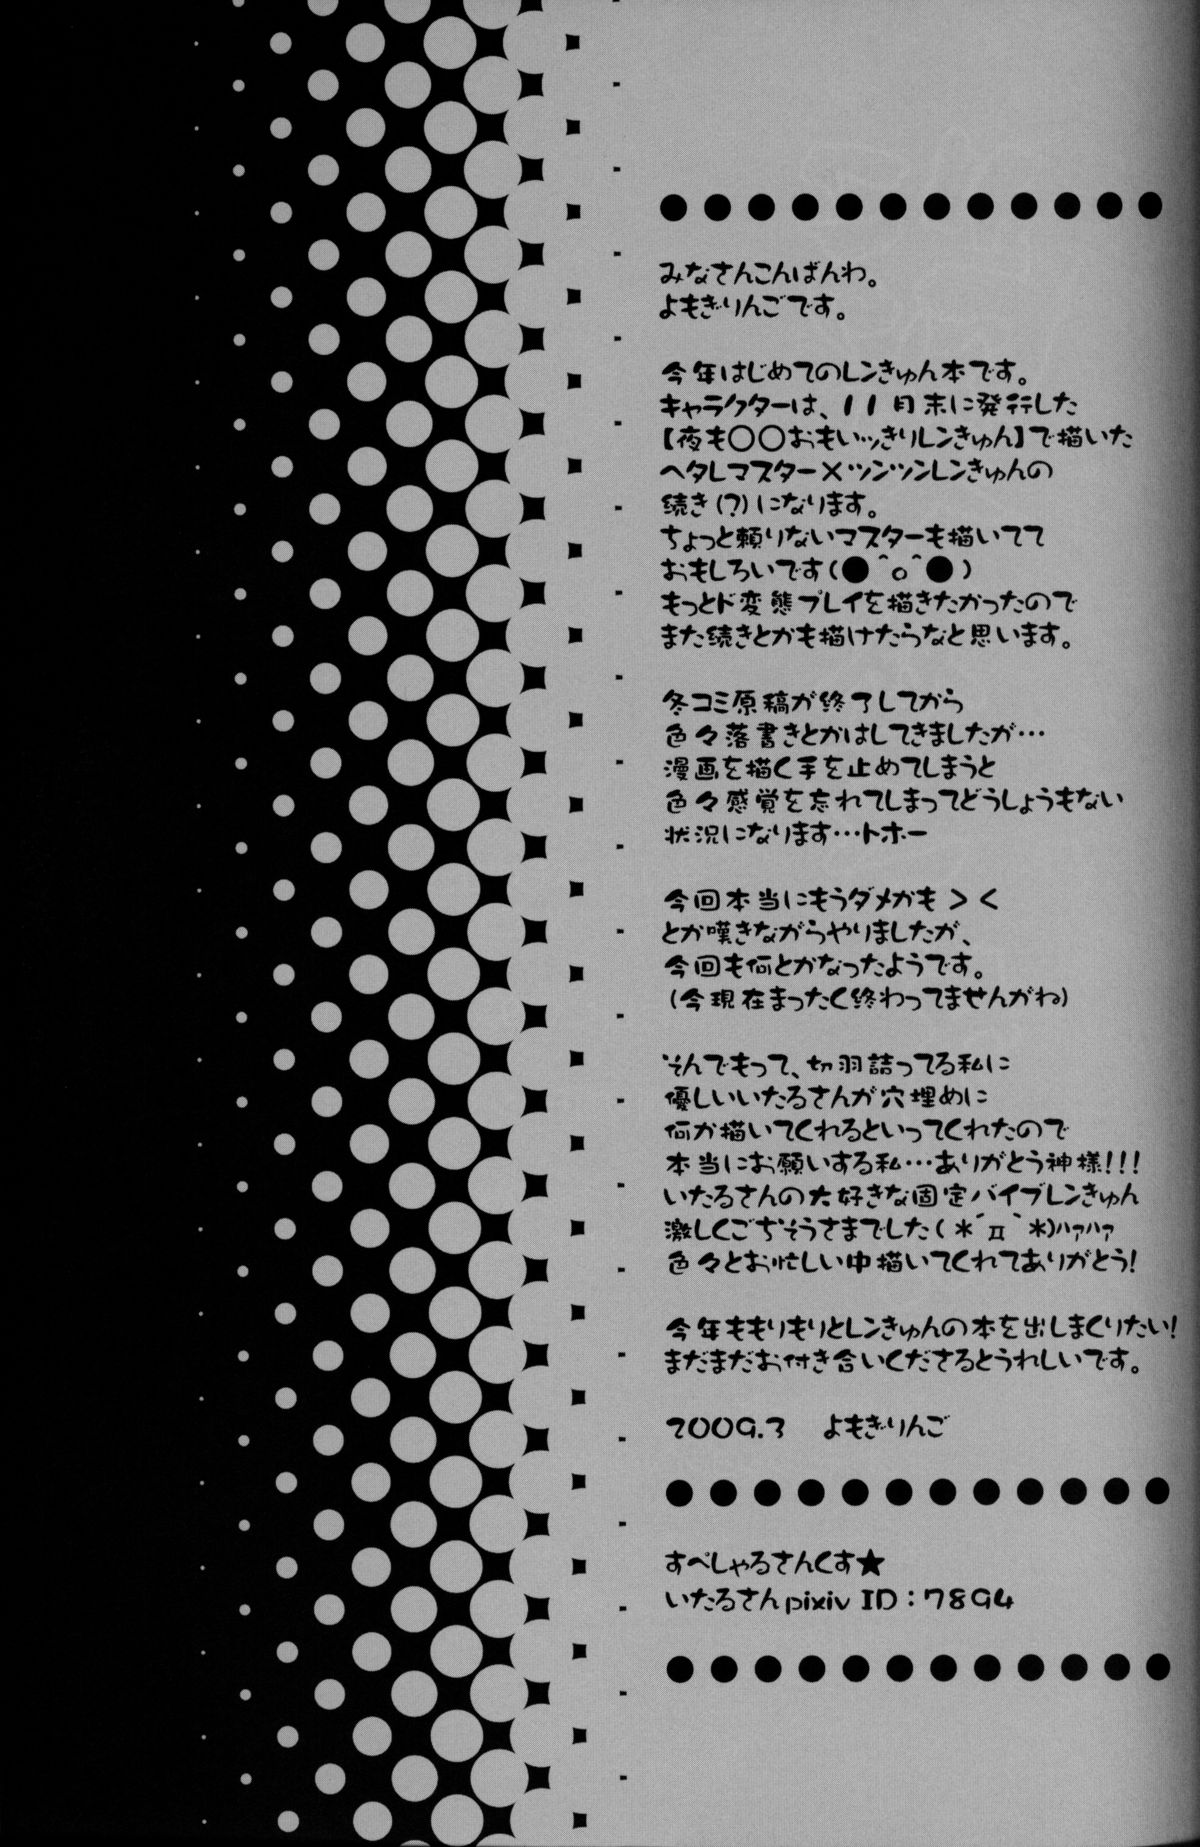 みなさんこんばんわ。
よもぎりんごです。
今年はじめてのレンきゅん本です。
キャラクターは、11月末に発行した
【夜も〇〇おもいッきりレンきゅん】で描いた
ヘタレマスター×ツンツンレンきゅんの
続き(?)になります。
ちょっと頼りないマスターも描いてて
おもしろいです(●＾o＾●)
もっとド変態プレイを描きたかったので
また続きとかも描けたらなと思います。
冬コミ原稿が終了してから
色々落書きとかはしてきましたが…
漫画を描く手を止めてしまうと
色々感覚を忘れてしまってどうしょうもない
状況になります…トホー
今回本当にもうダメかも＞＜
とか嘆きながらやりましたが、
今回も何とかなったようです。
(今現在まったく終わってませんがね)
そんでもって、切羽詰ってる私に
優しいいたるさんが穴埋めに
何か描いてくれるといってくれたので
本当にお願いする私…ありがとう神様!!!
いたるさんの大好きな固定バイブレンきゅん
激しくごちそうさまでした(＊´π｀＊)ﾊｧﾊｧ
色々とお忙しい中描いてくれてありがとう!
今年ももりもりとレンきゅんの本を出しまくりたい!
まだまだお付き合いくださるとうれしいです。
2009.3　よもぎりんご
すぺしゃるさんくす★
いたるさんpixiv ID：7894